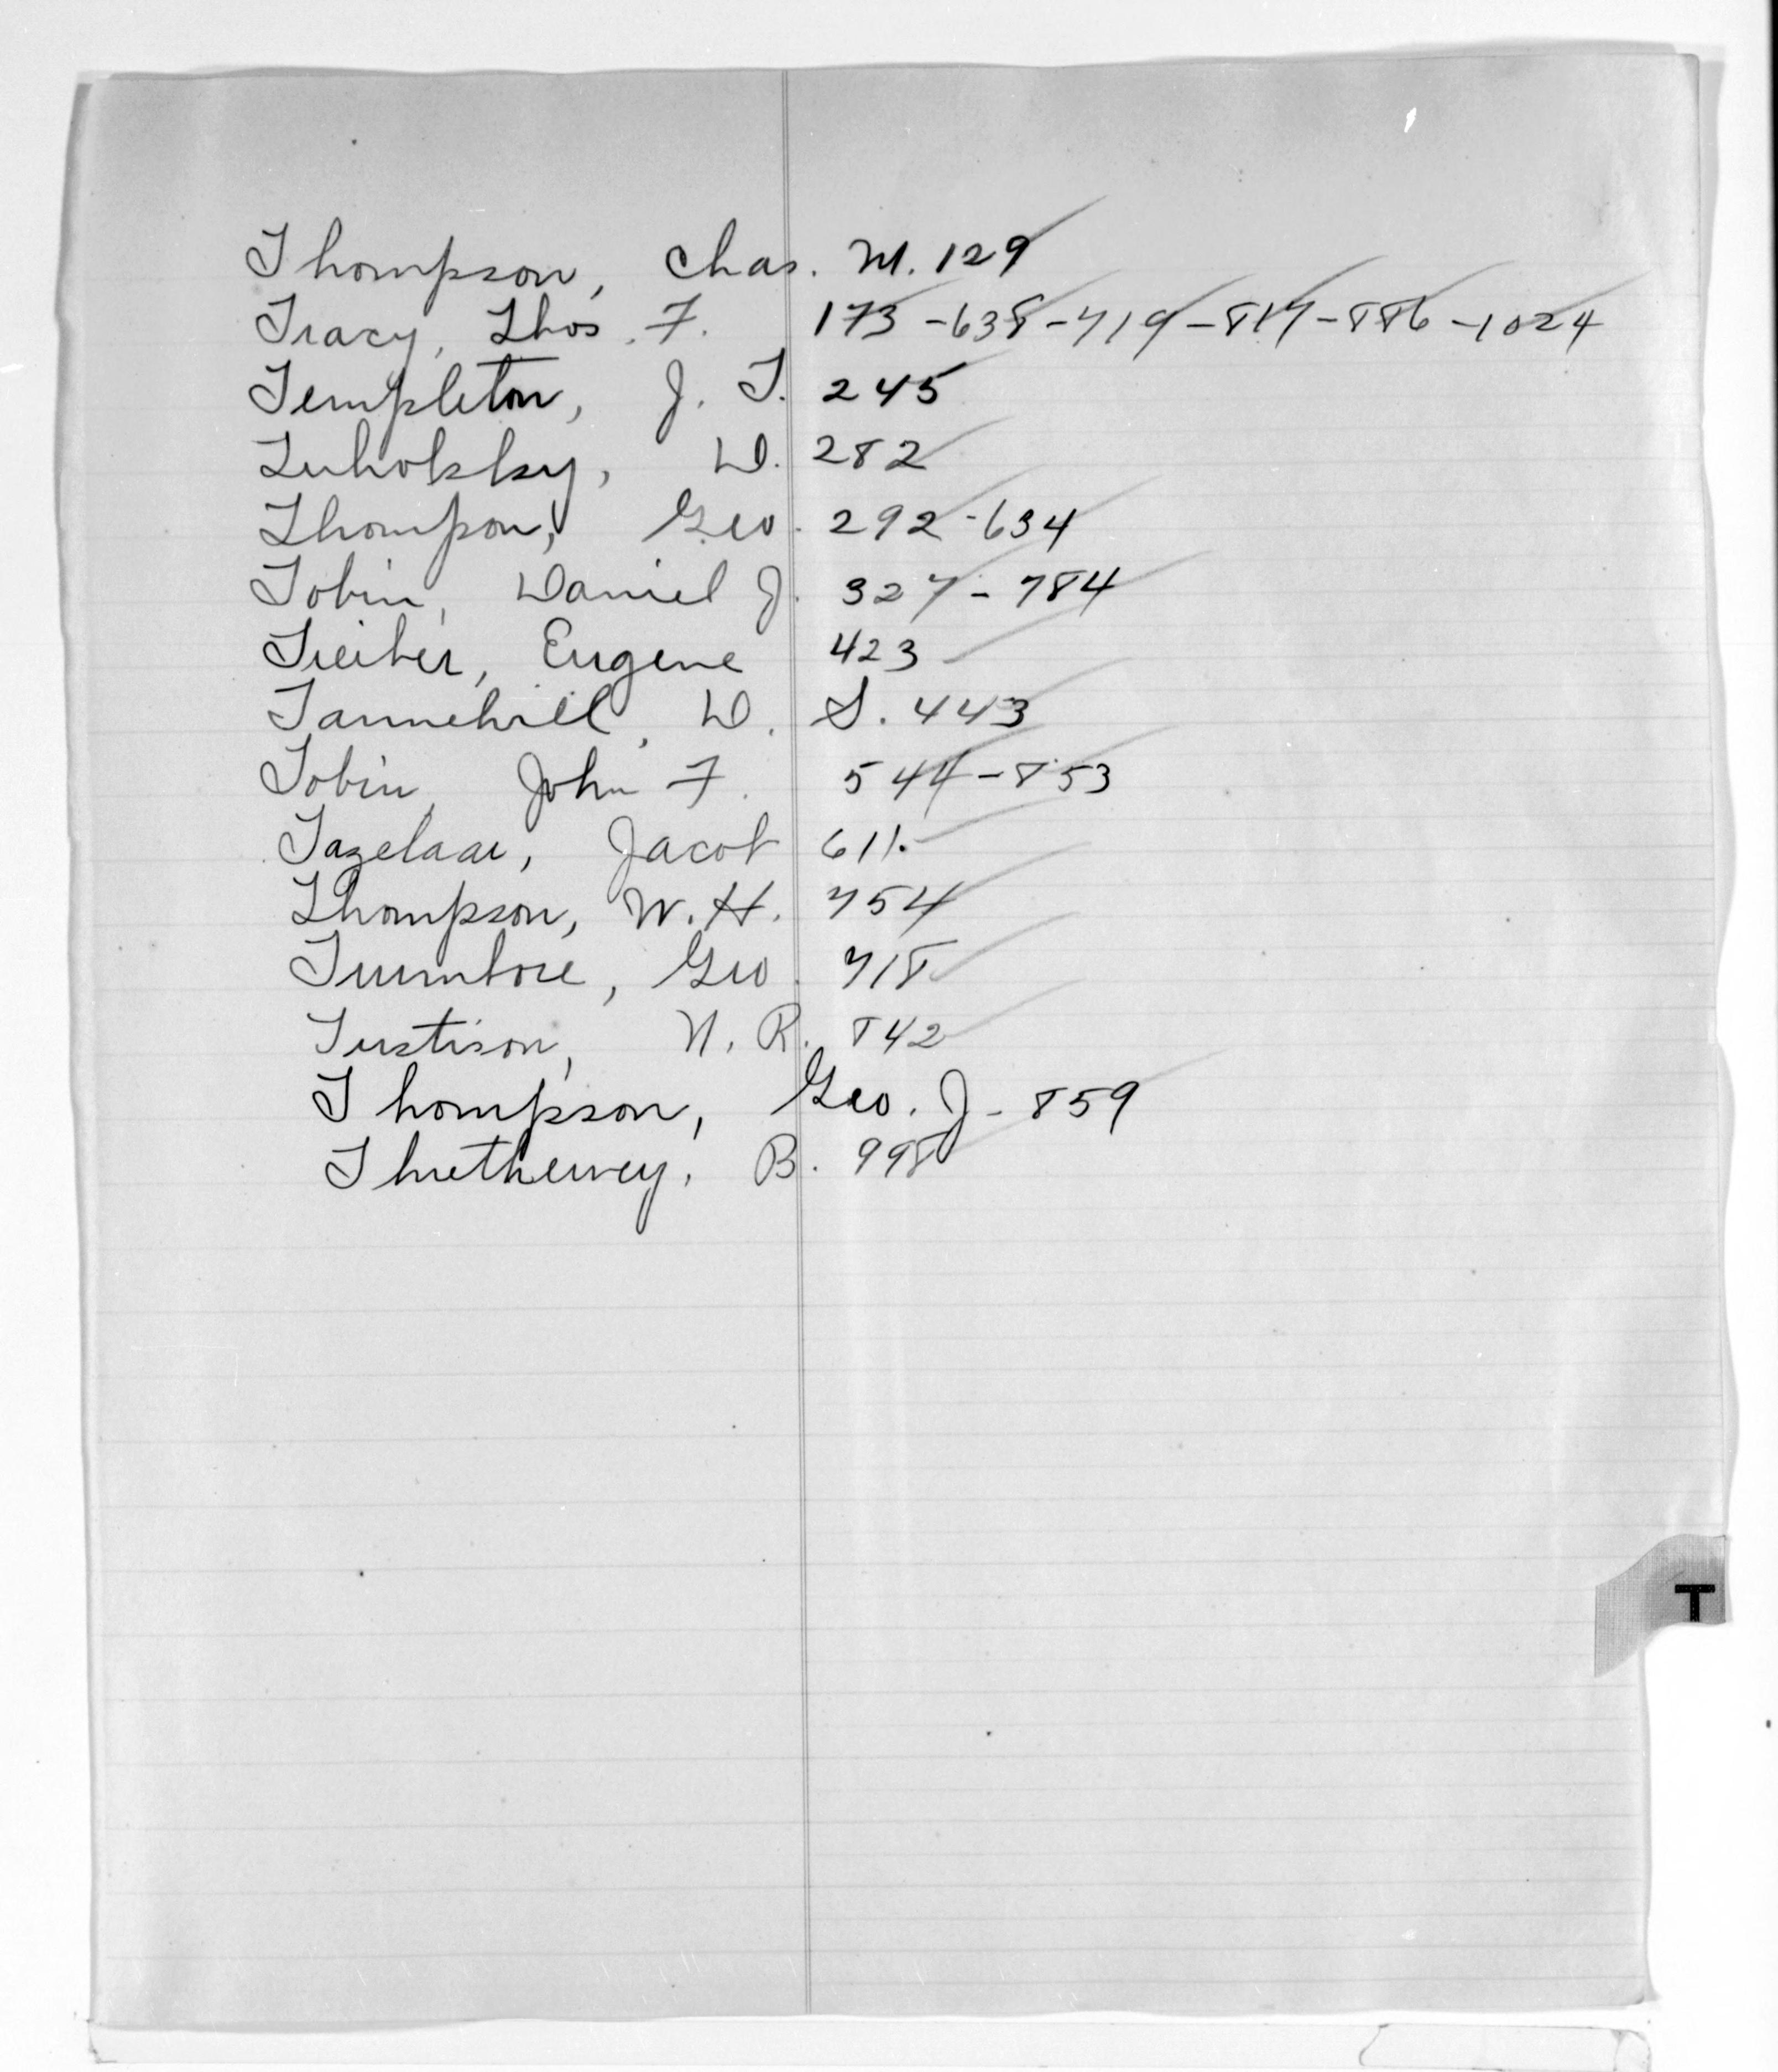 Thompson, Chas. M. 129
Tracy, Thos. F. 173-638-719-817-886-1024
Templeton, J. T. 245
Tuholsky, D. 282
Thompson, Geo. 292-634
Tobin, Daniel J. 327-784
Treiber, Eugene 423
Tannehill, D. S. 443
Tobin, John F. 544-853
Tazelaar, Jacob 611.
Thompson, W. H. 754
Trumbore, Geo. 718
Tustison, N. R. 842
Thompson, Geo. J - 859
Threthewey, B. 998
T